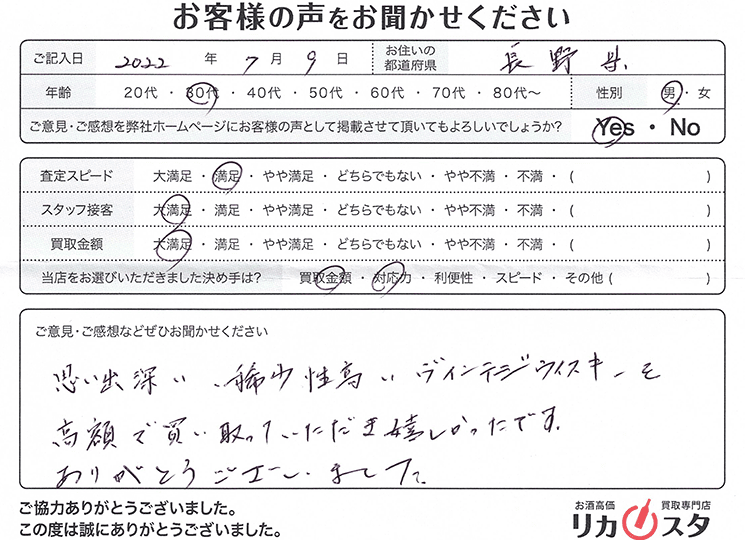 お客様の声をお聞かせください
ご記入日 2022 年 7 月 9 日 お住いの都道府県 長野県
年齢 20代 ・ 30代 ・ 40代 ・ 50代 ・ 60代 ・ 70代 ・ 80代〜 性別 男 ・ 女
ご意見・ご感想を弊社ホームページにお客様の声として掲載させて頂いてもよろしいでしょうか? Yes ・ No
査定スピード 大満足 ・ 満足 ・ やや満足 ・ どちらでもない ・ やや不満 ・ 不満 ・ ( )
スタッフ接客 大満足 ・ 満足 ・ やや満足 ・ どちらでもない ・ やや不満 ・ 不満 ・ ( )
買取金額 大満足 ・ 満足 ・ やや満足 ・ どちらでもない ・ やや不満 ・ 不満 ・ ( )
当店をお選びいただきました決め手は? 買取金額 ・ 対応力 ・ 利便性 ・ スピード ・ その他 ( )
ご意見・ご感想などぜひお聞かせください
思い出深い、稀少性高いヴィンテージウイスキーを
高額で買い取っていただき嬉しかったです。
ありがとうございました。
ご協力ありがとうございました。
この度は誠にありがとうございます。
お酒高価 買取専門店
リカスタ